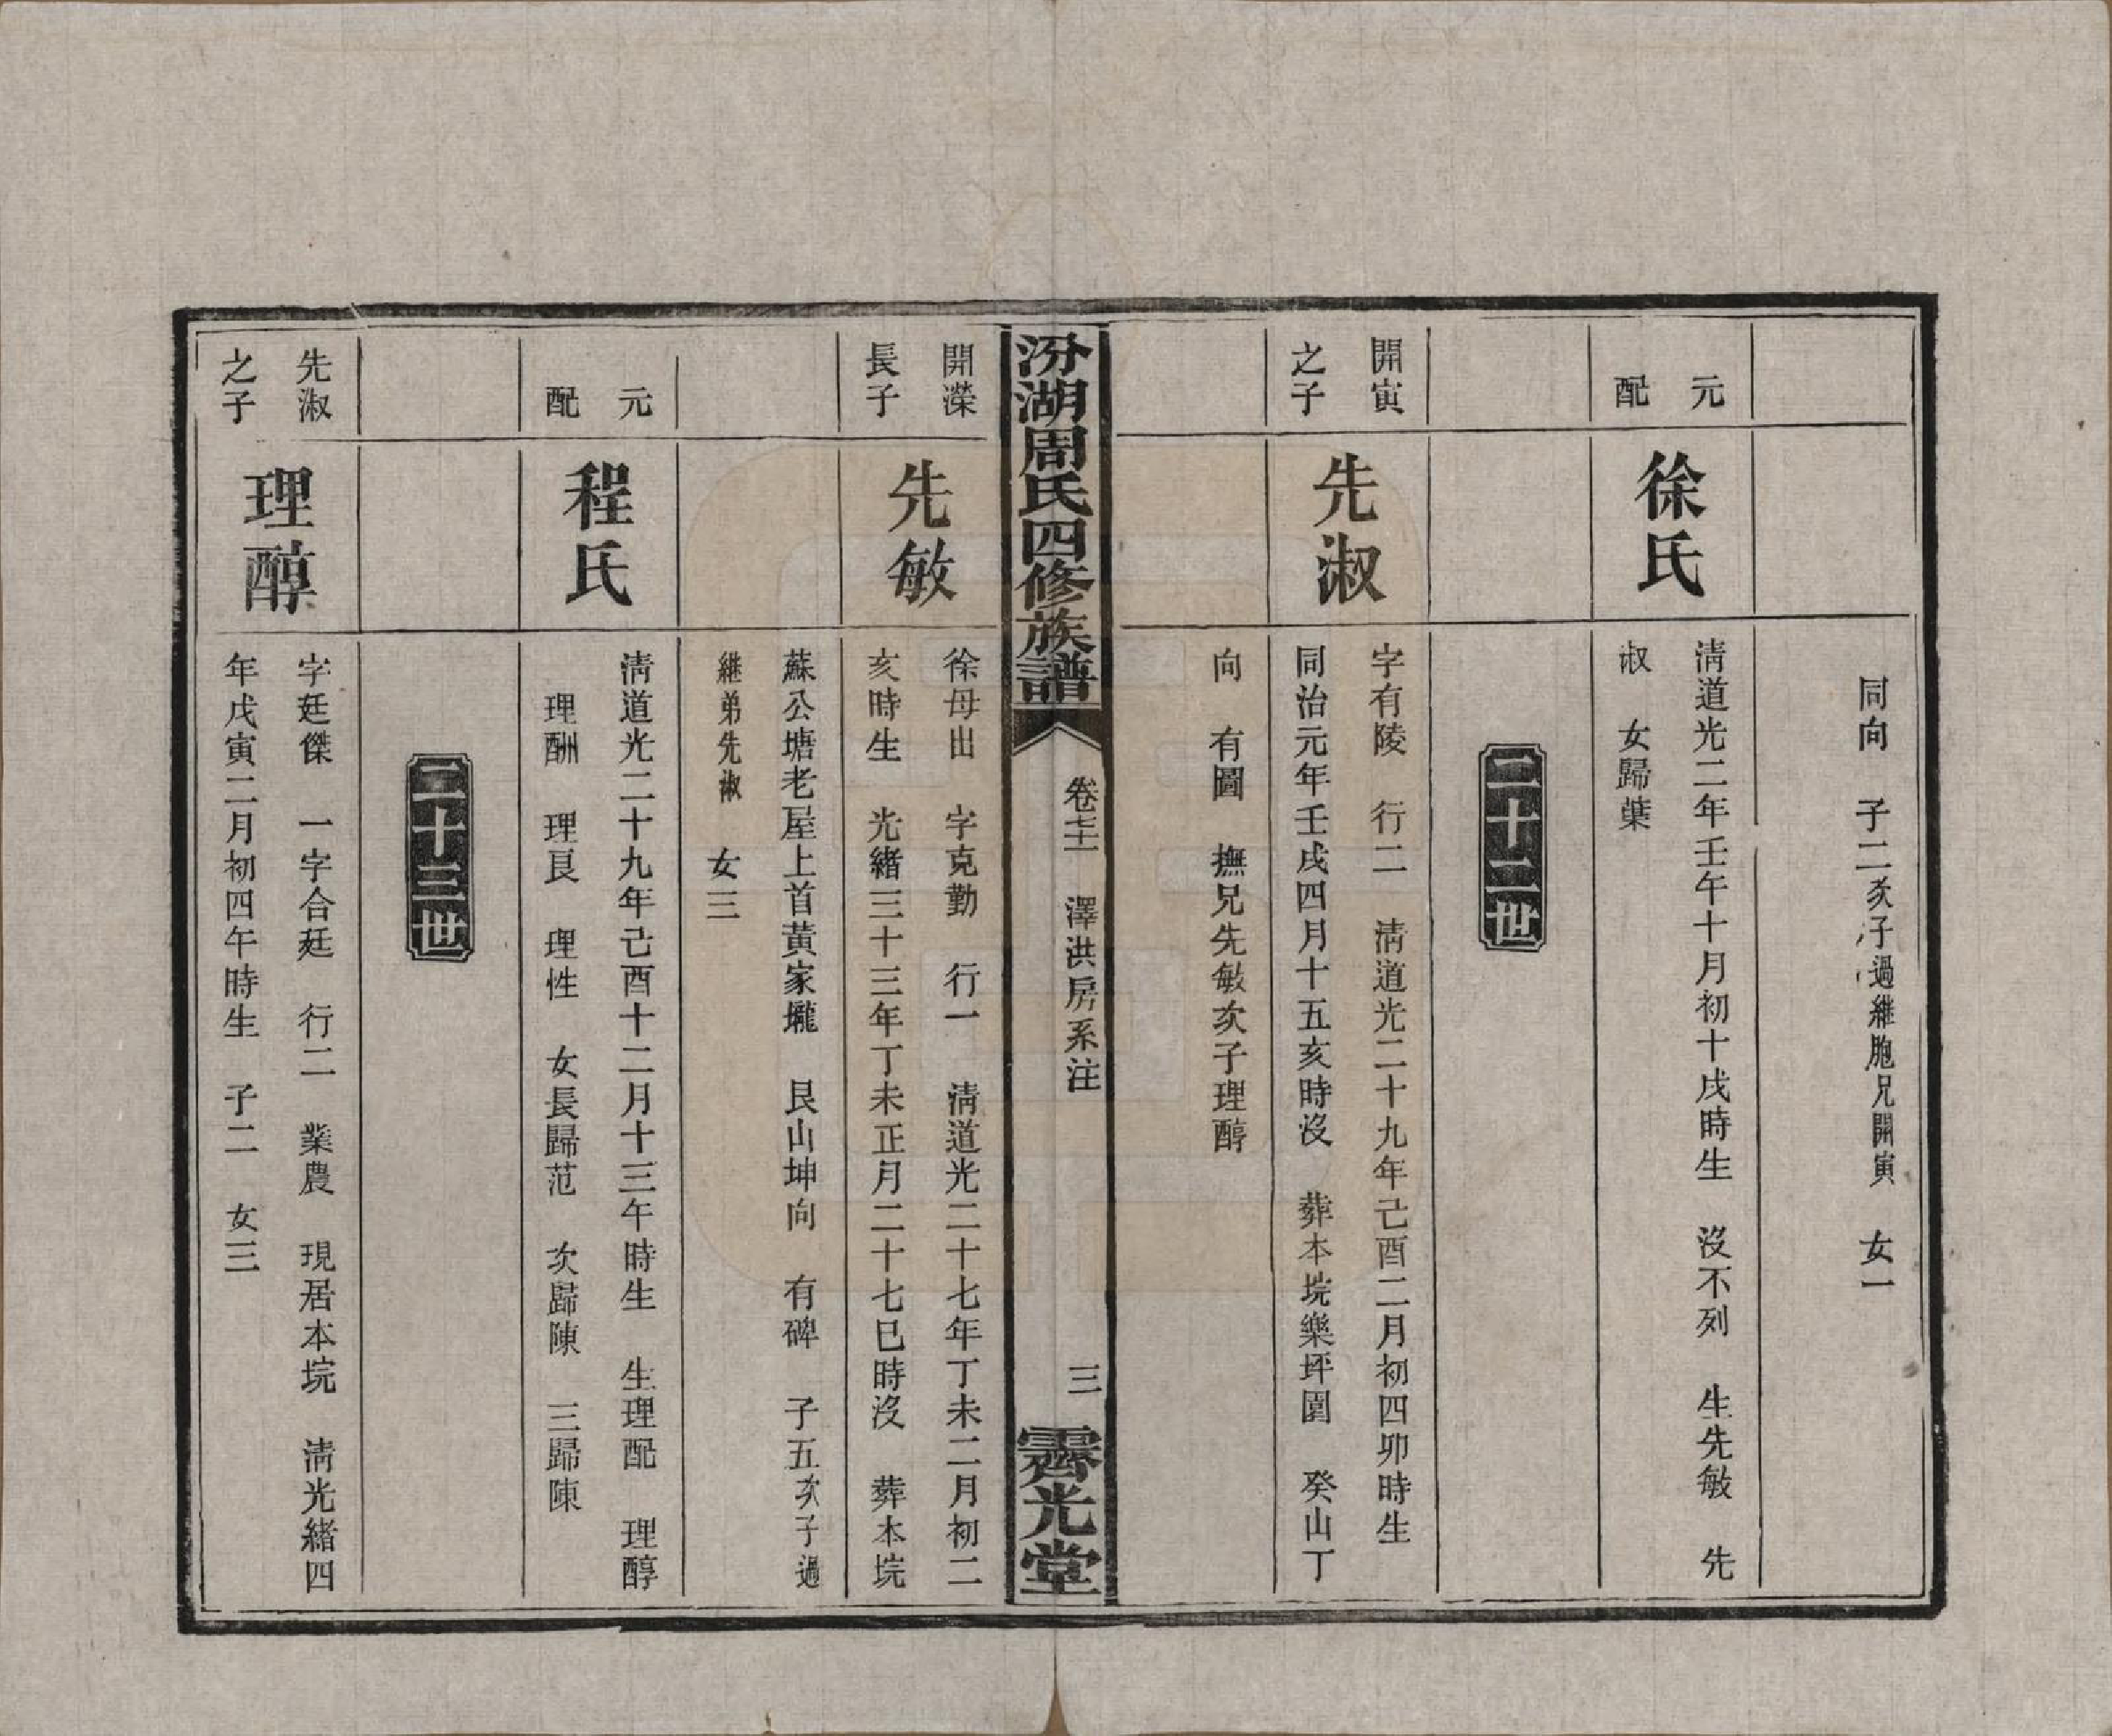 同向　子二次子過繼胞兄開寅　女一
元配
徐氏
淸道光二年壬午十月初十戌時生　沒不列　生先敏　先
淑　女歸葉
二十二世
開寅之子
先淑
字有陵　行二　淸道光二十九年己酉二月初四卯時生
同治元年壬戌四月十五亥時沒　葬本垸樂坪園　癸山丁
向　有圖　撫兄先敏次子理醇
汾湖周氏四修族譜
卷七十二　澤洪房系注
三
霽光堂
開濚長子
先敏
徐母出　字克勤　行一　淸道光二十七年丁未二月初二
亥時生　光緒三十三年丁未正月二十七巳時沒　葬本垸
蘇公塘老屋上首黃家壠　艮山坤向　有碑　子五次子過
繼弟先淑　女三
元配
程氏
淸道光二十九年己酉十二月十三午時生　生理配　理醇
理酬　理艮　理性　女長歸范　次歸陳　三歸陳
二十三世
先淑之子
理醇
字廷傑　一字合廷　行二　業農　現居本垸　淸光緒四
年戊寅二月初四午時生　子二　女三